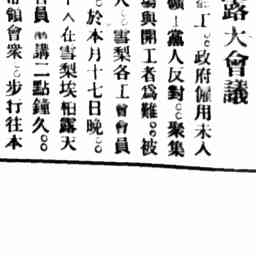 路大會議
工○○政府僱用未入
礦工黨人反對○○聚集
與開工者爲難○○被
人○○雪梨各工會會員
○○於本月十七日晚○○
人在雪梨埃柏露天
員演講二點鐘久○○
領會衆○○步行往本